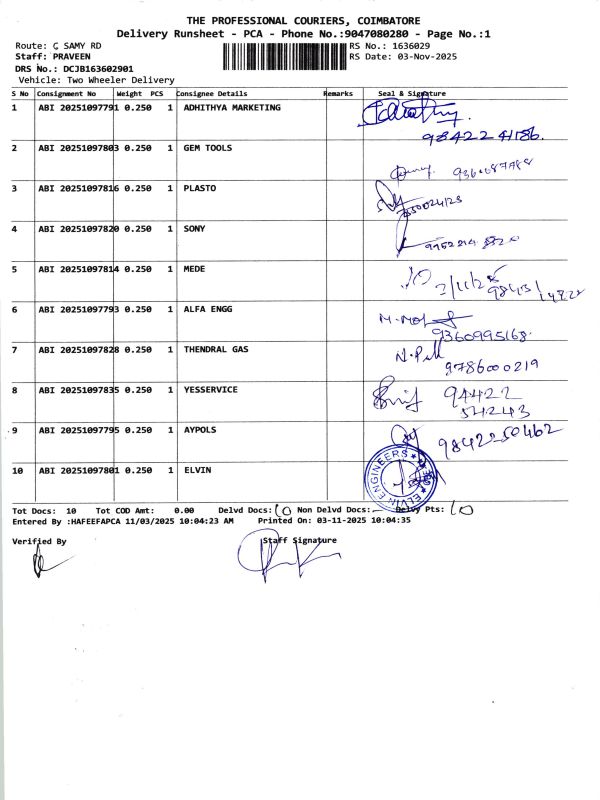 THE PROFESSIONAL COURIERS, COIMBATORE
Delivery Runsheet - PCA - Phone No.:9047080280 - Page No.:1
Route: G SAMY RD RS No.: 1636029
Staff: PRAVEEN RS Date: 03-Nov-2025
DRS No.: DCJB163602901
Vehicle: Two Wheeler Delivery
S No Consignment No Weight PCS Consignee Details Remarks Seal & Signature
1 ABI 20251097791 0.250 1 ADHITHYA MARKETING
98422 41186.
2 ABI 20251097803 0.250 1 GEM TOOLS
3 ABI 20251097816 0.250 1 PLASTO
4 ABI 20251097820 0.250 1 SONY
5 ABI 20251097814 0.250 1 MEDE
3/11/25
6 ABI 20251097793 0.250 1 ALFA ENGG
9360995168.
7 ABI 20251097828 0.250 1 THENDRAL GAS
9786000219
8 ABI 20251097835 0.250 1 YESSERVICE
94422
54243
9 ABI 20251097795 0.250 1 AYPOLS
9842250462
10 ABI 20251097801 0.250 1 ELVIN
ELVIN ENGINEERS
Tot Docs: 10 Tot COD Amt: 0.00 Delvd Docs: 10 Non Delvd Docs: — Delvy Pts: 10
Entered By :HAFEEFAPCA 11/03/2025 10:04:23 AM Printed On: 03-11-2025 10:04:35
Verified By Staff Signature